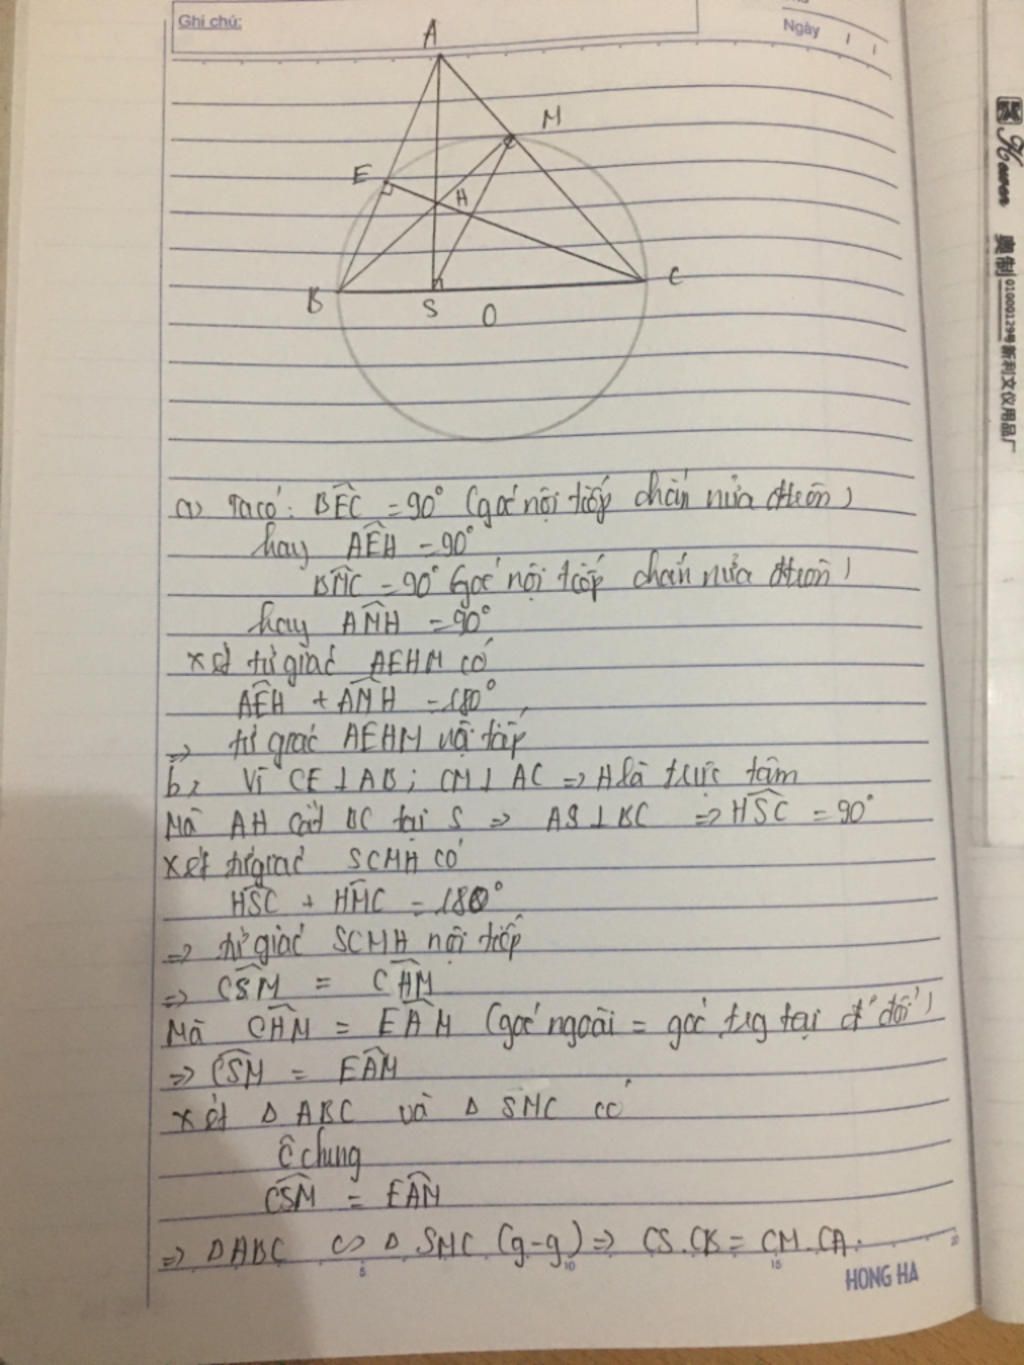 Ghi chú:
Ngày
A
M
E
H
B
S
O
C
a) Ta có: BÊC = 90° (góc nội tiếp chắn nửa đtròn)
hay AÊH = 90°
BM̂C = 90° (góc nội tiếp chắn nửa đtròn)
hay AM̂H = 90°
Xét tứ giác AEHM có
AÊH + AM̂H = 180°
=> tứ giác AEHM nội tiếp
b, Vì CE ⊥ AB; CM ⊥ AC => H là trực tâm
Mà AH cắt BC tại S => AS ⊥ BC => HŜC = 90°
Xét tứ giác SCMH có
HŜC + HM̂C = 180°
=> tứ giác SCMH nội tiếp
=> CŜM = CĤM
Mà CĤM = EÂM (góc ngoài = góc trg tại đ' đối)
=> CŜM = EÂM
Xét Δ ABC và Δ SMC có
Ĉ chung
CŜM = EÂM
=> ΔABC ∽ Δ SMC (g-g) => CS.CB = CM.CA.
5
10
15
20
HONG HA
奥制
010000129号新利文仪用品厂